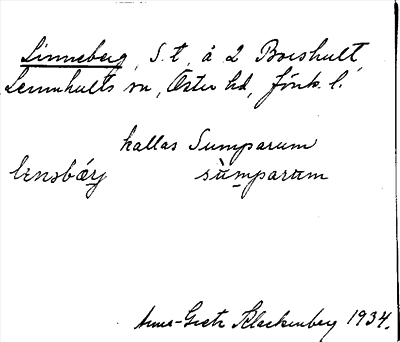 Linneberg, S.t. å 2 Boeshult,
Lemnhults sn, Östra hd, Jönk. l.
kallas Sumparum
sùmparum
Anna-Greta Blackenberg 1934.